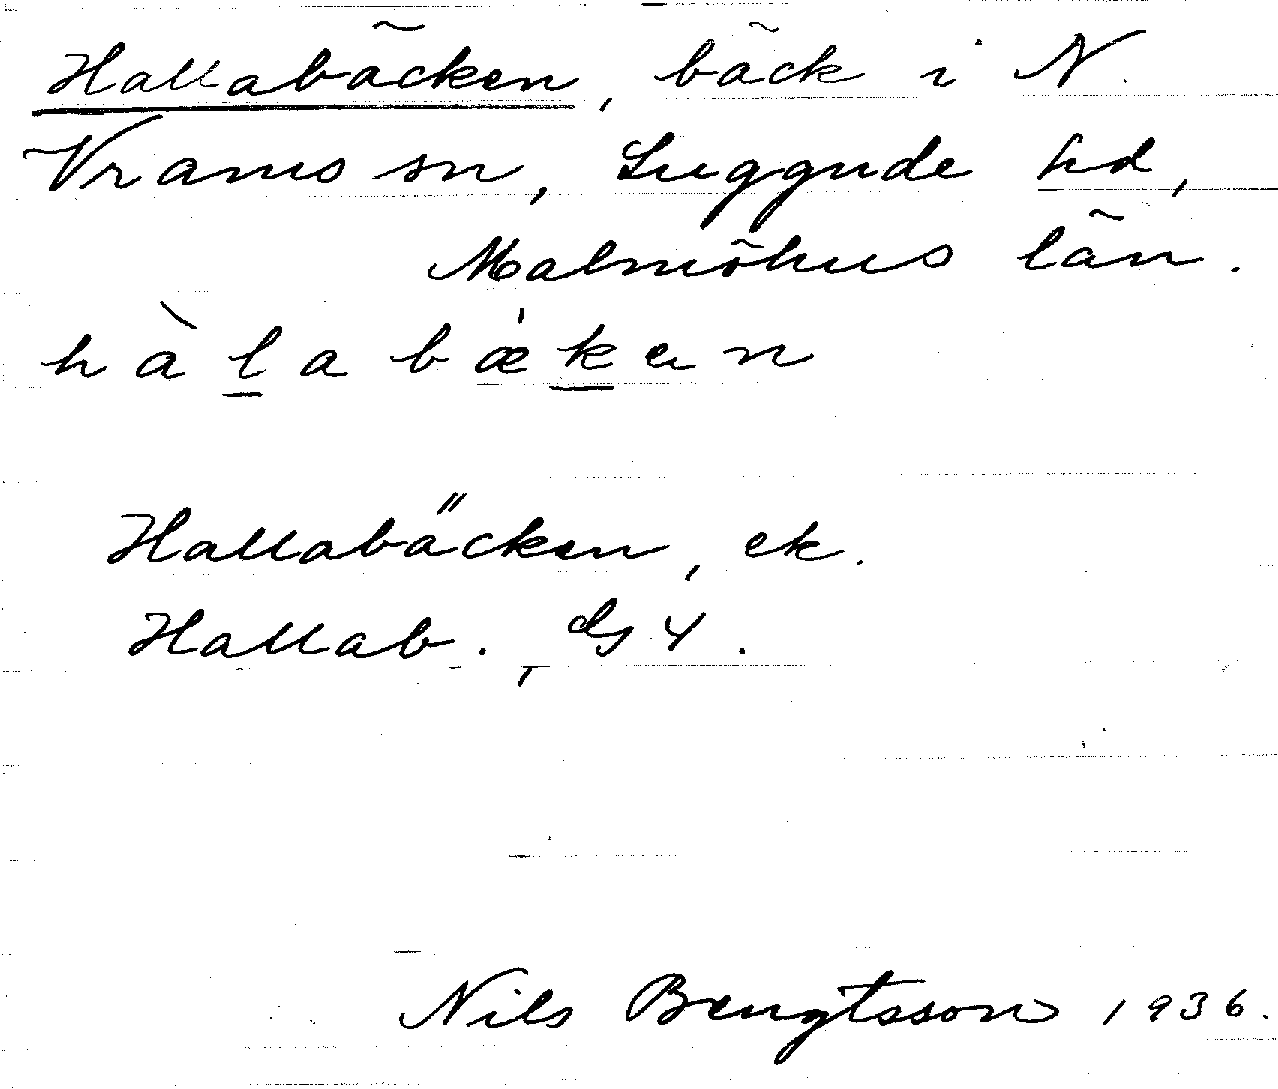 Hallabäcken, bäck i N.
Vrams sn, Luggude hd,
Malmöhus län.
hàlabækən
Hallabäcken, ek.
Hallab.
Nils Bengtsson 1936.